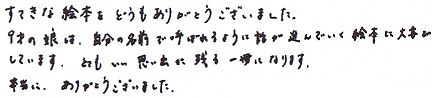 すてきな絵本をどうもありがとうございました。
9才の娘は、自分の名前で呼ばれるように話が進んでいく絵本に大喜び
しています。とてもいい思い出に残る一冊になります。
本当に、ありがとうございました。